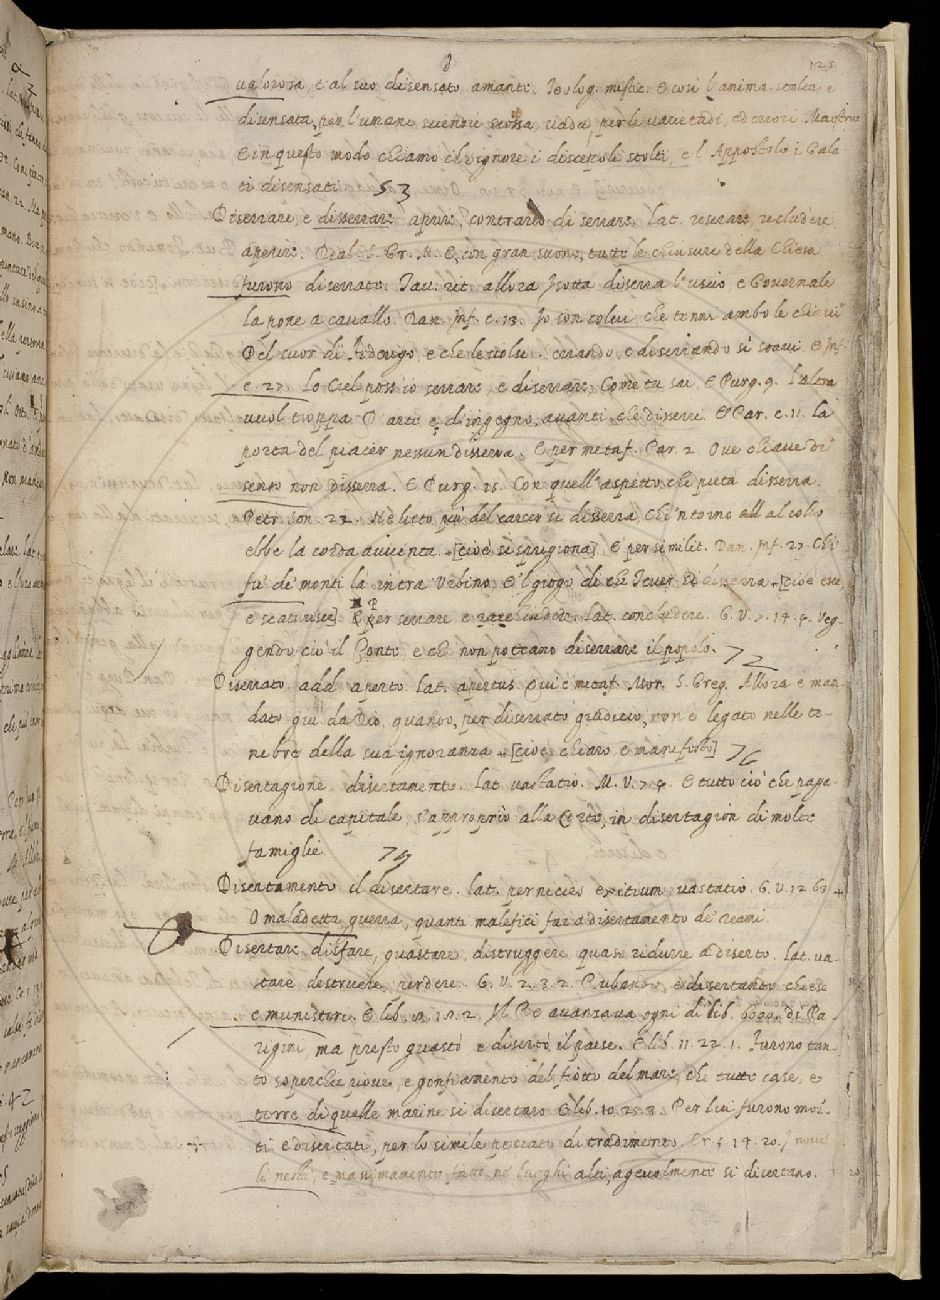 125
valorosa, e al suo disensato amante. Teolog. mistic. E così l'anima stolta e
disensata, per l'umane vada per le e Maestre
E in questo modo chiamò il signore i discepoli stolti, e l'Appostolo i Gala
ti disensati. 53
Diserrare, e disserrare aprire, contrario di serrare. lat. reserare, recludere
aperire. Dial. S. Gr. M. E con gran suono, tutte le chiusure della Chiesa
furono diserrate. Tav. rit. allora Isotta diserra l'uscio e Governale
la pone a cavallo. Dan. Inf. c. 13. Io son colui che tenni ambo le chiavi
Del cuor di Federigo, e che le volsi. serrando, e diserrando sì soavi E Inf.
c. 27. lo Ciel poss'io serrare, e diserrare, Come tu sai E Purg. 9. l'altra
vuol troppa D'arte e d'ingegno, avanti, che diserri E Par. c. 11. la
porta del piacer nessun disserra. E per metaf. Par. 2. Ove chiave di
senso non disserra. E Purg. 15. Con quell'aspetto che pietà disserra.
Petr. Son. 22. Nè lieto più del carcer si disserra Chi 'ntorno all al collo
ebbe la corda avvinta [cioè si sprigiona] E per similit. Dan. Inf. 27. Chi
fu de' monti là intra Urbino, E 'l giogo di che Tever si disserra [cioè esce,
e scaturisce] E per serrare e racchiudere. lat. concludere. G. V. 7. 14. 4. Veg-
gendo ciò il Conte e che non potearno diserrare il popolo. 72
Diserrato. add. aperto lat. apertus. Qui è metaf. Mor. S. Greg. Allora è man-
dato giù da Dio, quando, per diserrato giudicio, non è legato nelle te-
nebre della sua ignoranza [cioè chiaro e manifesto] 76
Disertagione disertamento. lat. vastatio. M. V. 7. 4. E tutto ciò che paga-
vano di capitale, s'appropriò alla Corte, in disertagion di molte
famiglie. 79
Disertamento il disertare. lat. pernicies exitium, vastatio. G. V. 12. 63.
O maladetta guerra, quanti malefici fai a disertamento de' reami.
Disertare, disfare, guastare, distruggere quasi ridurre a diserto. lat. va-
stare destruere, perdere. G. V. 2. 3. 2. Rubando e disertando chiese
e munisteri. E lib. Il Re avanzava ogni dì lib. 6000. di Pa-
rigini, ma presto guastò e disertò il paese. E lib. 11. 22. 1. Furono tan-
to soperchie piove, e gonfiamento del fiotto del mare, che tutte case, e
terre di quelle marine si disertaro. E lib. 10. 25. 3. Per lui furono mor-
ti e disertati, per lo simile peccato di tradimento. Cr. 5. 14. 20. I novel
li nesti, e massimamente, fatti ne' luoghi alti, agevolmente si disertano.